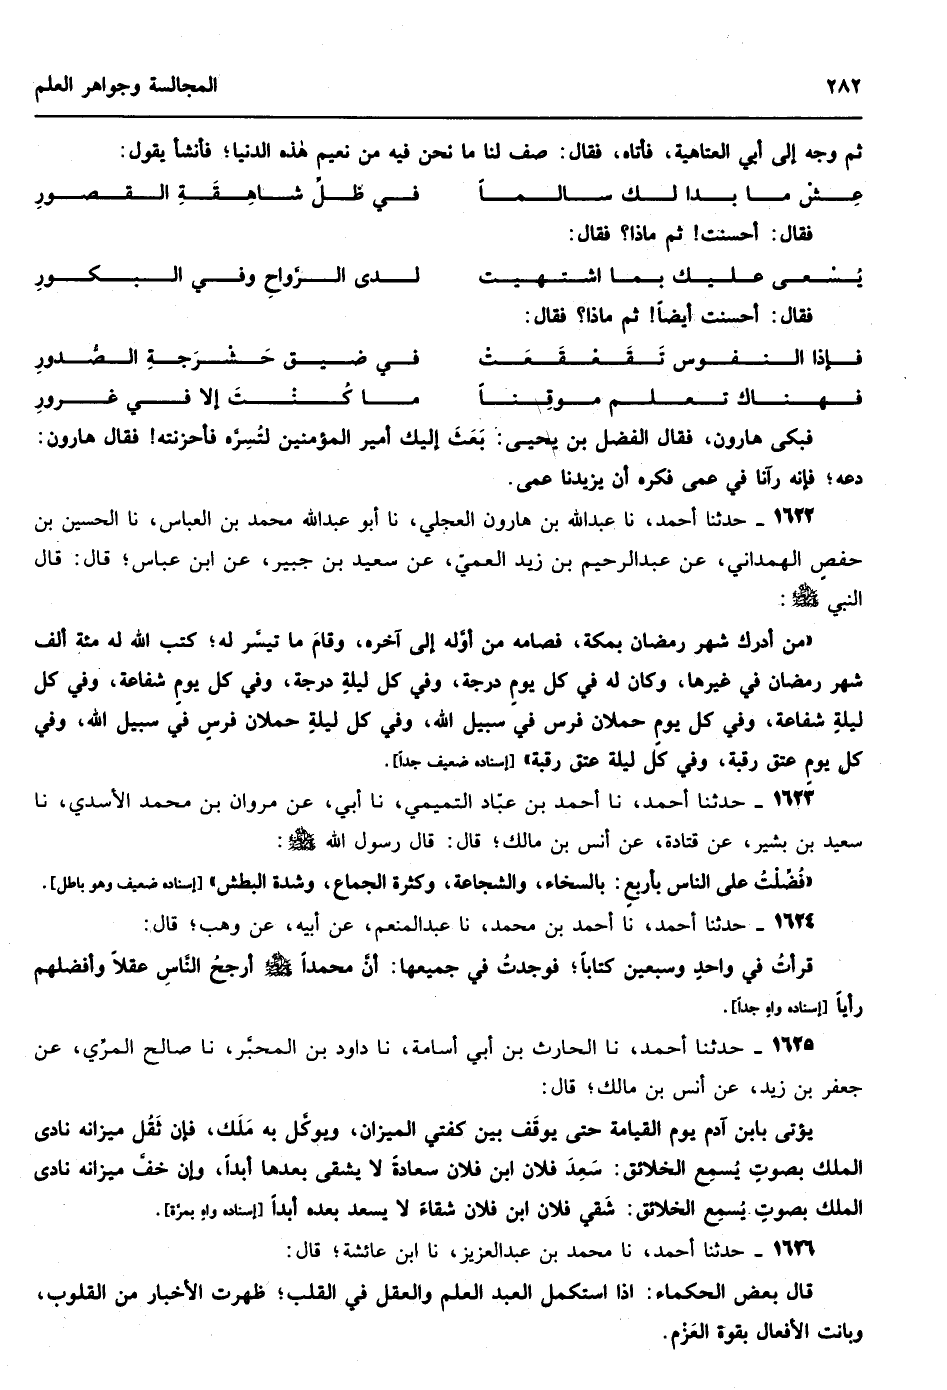 ٢٨٢ المجالسة وجواهر العلم
ثم وجه إلى أبي العتاهية، فأتاه، فقال: صف لنا ما نحن فيه من نعيم هٰذه الدنيا؛ فأنشأ يقول:
عِشْ ما بدا لك سالماً في ظَلِّ شاهِقَةِ القصورِ
فقال: أحسنت! ثم ماذا؟ فقال:
يُسْعى عليك بما اشتهيت لدى الرَّواحِ وفي البكورِ
فقال: أحسنت أيضاً! ثم ماذا؟ فقال:
فإذا النفوس تَقَعْقَعَتْ في ضيق حَشْرَجةِ الصُّدورِ
فهناك تعلم موقِناً ما كُنْتَ إلا في غرورِ
فبكى هارون، فقال الفضل بن يحيى: بَعَثَ إليك أمير المؤمنين لتُسِرَّه فأحزنته! فقال هارون:
دعه؛ فإنه رآنا في عمى فكره أن يزيدنا عمى.
١٦٢٢ ـ حدثنا أحمد، نا عبدالله بن هارون العجلي، نا أبو عبدالله محمد بن العباس، نا الحسين بن
حفصٍ الهمداني، عن عبدالرحيم بن زيد العميّ، عن سعيد بن جبير، عن ابن عباس؛ قال: قال
النبي ﷺ:
«من أدرك شهر رمضان بمكة، فصامه من أوَّله إلى آخره، وقامَ ما تيسَّر له؛ كتب الله له مئة ألف
شهر رمضان في غيرها، وكان له في كل يومٍ درجة، وفي كل ليلةٍ درجة، وفي كل يومٍ شفاعة، وفي كل
ليلةٍ شفاعة، وفي كل يومٍ حملان فرس في سبيل الله، وفي كل ليلةٍ حملان فرسٍ في سبيل الله، وفي
كل يومٍ عتق رقبة، وفي كل ليلة عتق رقبة» [إسناده ضعيف جداً].
١٦٢٣ ـ حدثنا أحمد، نا أحمد بن عبّاد التميمي، نا أبي، عن مروان بن محمد الأسدي، نا
سعيد بن بشير، عن قتادة، عن أنس بن مالك؛ قال: قال رسول الله ﷺ:
«فُضِّلْتُ على الناس بأربعٍ: بالسخاء، والشجاعة، وكثرة الجماع، وشدة البطش» [إسناده ضعيف وهو باطل].
١٦٢٤ ـ حدثنا أحمد، نا أحمد بن محمد، نا عبدالمنعم، عن أبيه، عن وهب؛ قال:
قرأتُ في واحدٍ وسبعين كتاباً؛ فوجدتُ في جميعها: أنَّ محمداً ﷺ أرجحُ النَّاسِ عقلاً وأفضلهم
رأياً [إسناده واهٍ جداً].
١٦٢٥ ـ حدثنا أحمد، نا الحارث بن أبي أسامة، نا داود بن المحبَّر، نا صالح المرِّي، عن
جعفر بن زيد، عن أنس بن مالك؛ قال:
يؤتى بابن آدم يوم القيامة حتى يوقَف بين كفتي الميزان، ويوكَّل به مَلَك، فإن ثَقُل ميزانه نادى
الملك بصوتٍ يُسمِع الخلائق: سَعِدَ فلان ابن فلان سعادةً لا يشقى بعدها أبداً، وإن خفَّ ميزانه نادى
الملك بصوتٍ يُسمِع الخلائق: شَقي فلان ابن فلان شقاءً لا يسعد بعده أبداً [إسناده واهٍ بمرّة].
١٦٢٦ ـ حدثنا أحمد، نا محمد بن عبدالعزيز، نا ابن عائشة؛ قال:
قال بعض الحكماء: اذا استكمل العبد العلم والعقل في القلب؛ ظهرت الأخبار من القلوب،
وبانت الأفعال بقوة العَزْم.